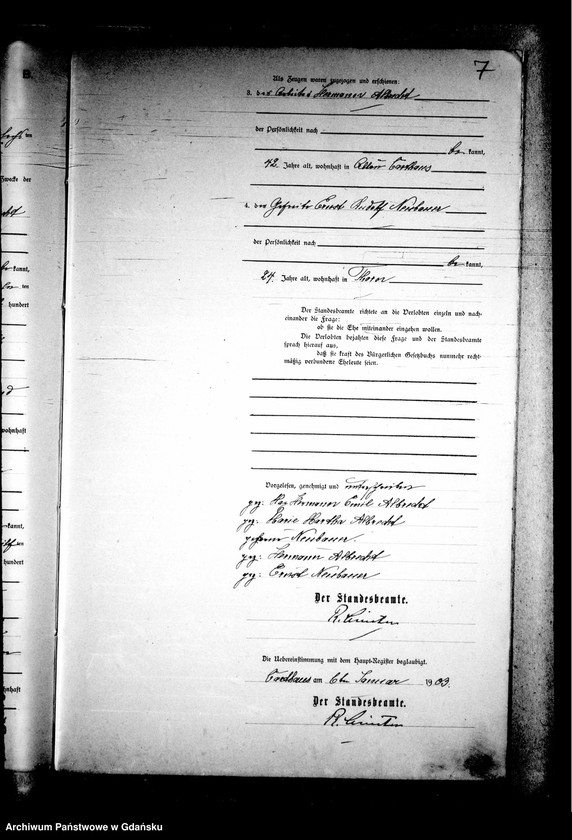 B.
7
Als Zeugen waren zugezogen und erschienen:
3. der Arbeiter Hermann Albrecht
der Persönlichkeit nach
be kannt,
42 Jahre alt, wohnhaft in
4. der Gefreite Ernst Rudolf Neubauer
der Persönlichkeit nach
be kannt,
24 Jahre alt, wohnhaft in Thorn
Der Standesbeamte richtete an die Verlobten einzeln und nach-
einander die Frage:
ob sie die Ehe miteinander eingehen wollen.
Die Verlobten bejahten diese Frage und der Standesbeamte
sprach hierauf aus,
daß sie kraft des Bürgerlichen Gesetzbuchs nunmehr recht-
mäßig verbundene Eheleute seien.
Vorgelesen, genehmigt und unterschrieben
gez: Max Hermann Emil Albrecht
gez: Marie Martha Albrecht
geborene Neubauer.
gez: Hermann Albrecht
gez: Ernst Neubauer
Der Standesbeamte.
Die Uebereinstimmung mit dem Haupt-Register beglaubigt.
am 6ten Januar 1903.
Der Standesbeamte.
Zwecke der
kannt,
ten
hundert
wohnhaft
kannt,
ten
hundert
wohnhaft
Archiwum Państwowe w Gdańsku